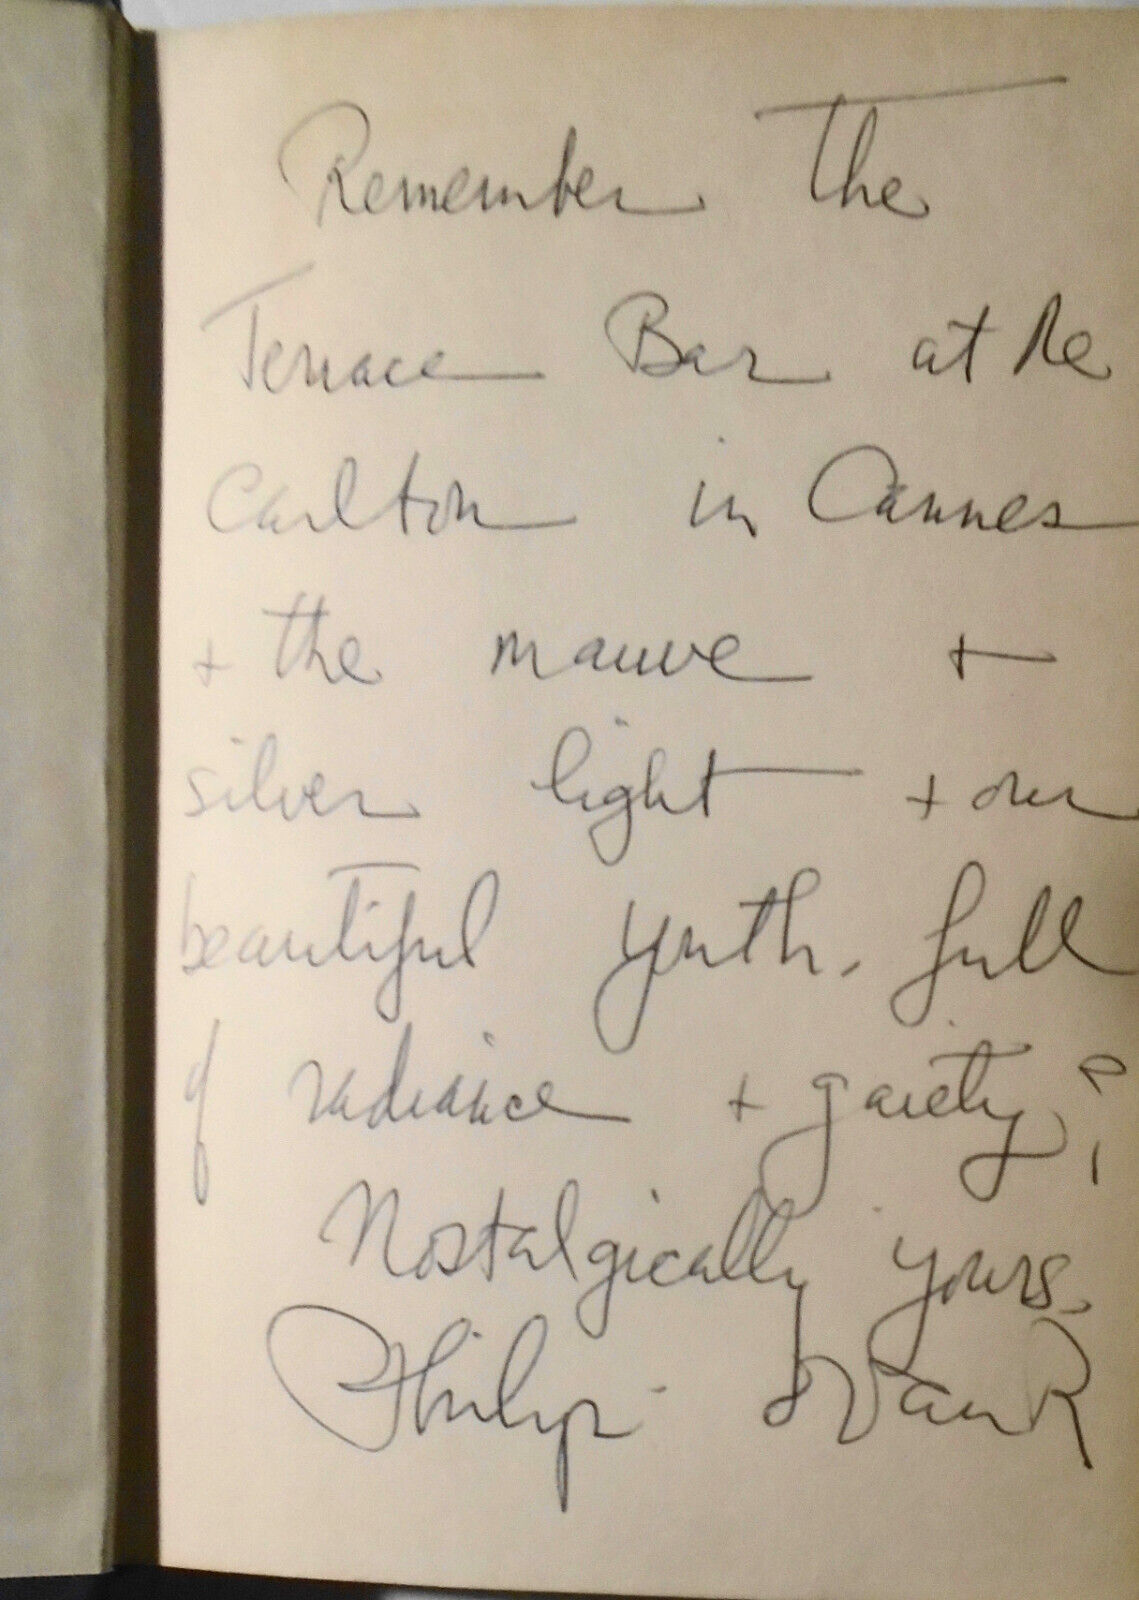 Remember the
Terrace Bar at the
Carlton in Cannes
+ the mauve +
silver light + our
beautiful youth, full
of radiance + gaiety?
Nostalgically yours,
Philip